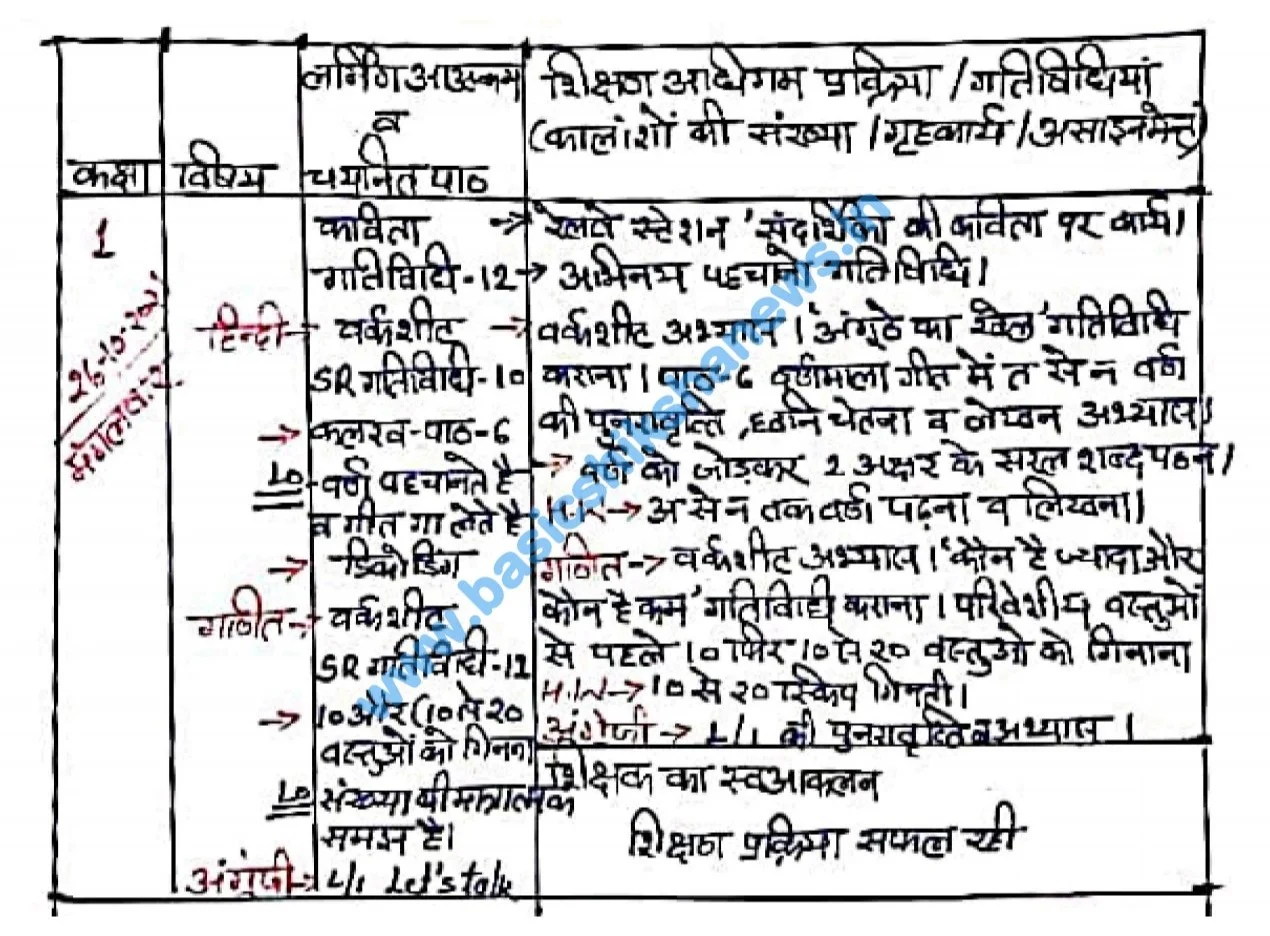 लर्निंग आउटकम
व
चयनित पाठ
शिक्षण अधिगम प्रक्रिया / गतिविधियां
(कालांशों की संख्या / गृहकार्य / असाइनमेन्ट)
कक्षा
विषय
1
26-10-
मंगलवार
हिन्दी →
गणित →
अंग्रेजी →
कविता →
गतिविधि-12 →
वर्कशीट →
SR गतिविधि-10
→ कलरव-पाठ-6
LO - वर्ण पहचानते है →
व गीत गा लेते है
→ डिकोडिंग
वर्कशीट
SR गतिविधि-12
→ 10 और (10 से 20
वस्तुओं को गिनना
LO संख्या की मात्रात्मक
समझ है।
L/1 Let's talk
'रेलवे स्टेशन' संदर्शिका की कविता पर कार्य।
अभिनय पहचानो गतिविधि।
वर्कशीट अभ्यास। 'अंगूठे का खेल' गतिविधि
कराना। पाठ-6 वर्णमाला गीत में त से न वर्ण
की पुनरावृत्ति, ध्वनि चेतना व लेखन अभ्यास।
वर्ण को जोड़कर 2 अक्षर के सरल शब्द पठन।
→ अ से न तक वर्ण पढ़ना व लिखना।
गणित → वर्कशीट अभ्यास। 'कौन है ज्यादा और
कौन है कम' गतिविधि कराना। परिवेशीय वस्तुओं
से पहले 10 फिर 10 से 20 वस्तुओ को गिनाना
H.W → 10 से 20 स्किप गिनती।
अंग्रेजी → L/1 की पुनरावृत्ति व अभ्यास।
शिक्षक का स्वआकलन
शिक्षण प्रक्रिया सफल रही
www.basicshikshanews.in